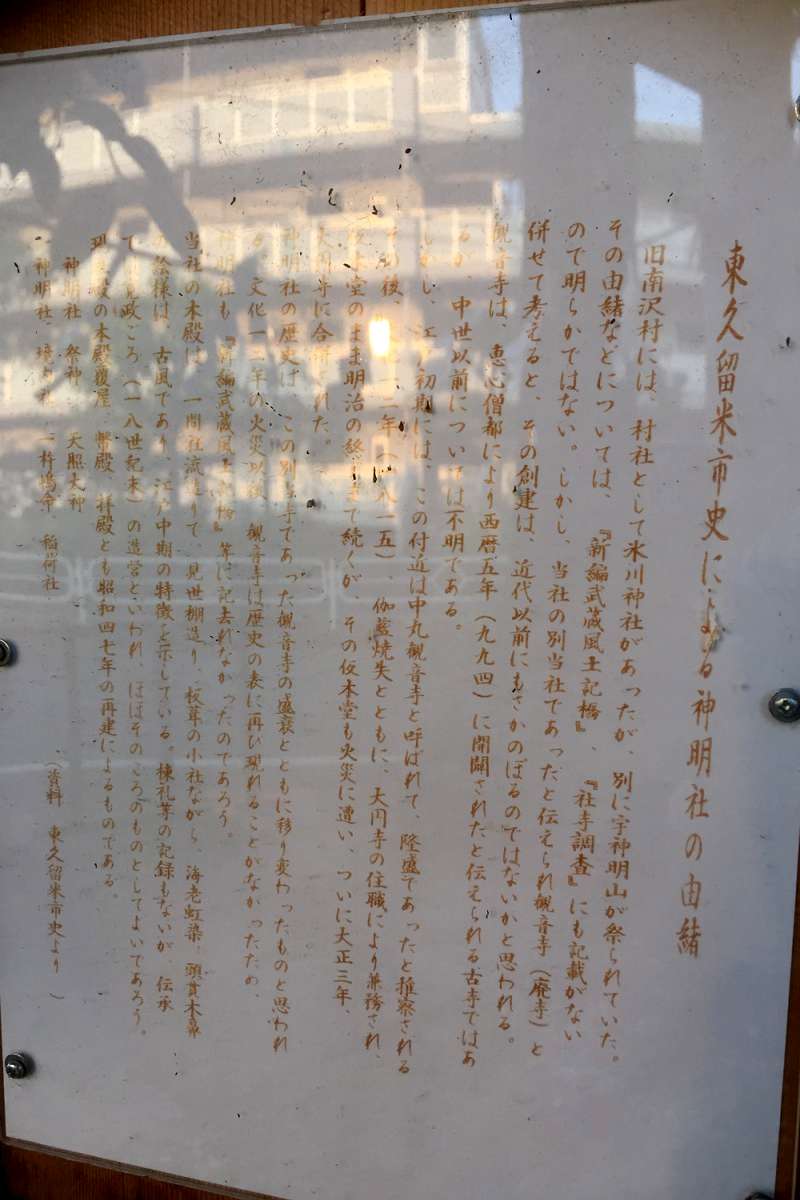 東久留米市史による神明社の由緒
旧南沢村には、村社として氷川神社があったが、別に字神明山が祭られていた。
その由緒などについては、『新編武蔵風土記稿』、『社寺調査』にも記載がない
ので明らかではない。しかし、当社の別当社であったと伝えられ観音寺(廃寺)と
併せて考えると、その創建は、近代以前にもさかのぼるのではないかと思われる。
観音寺は、恵心僧都により西暦五年(九九四)に開闢されたと伝えられる古寺ではあ
るが、中世以前については不明である。
しかし、江戸初期には、この付近は中丸観音寺と呼ばれて、隆盛であったと推察される
その後、十二年(一八一五)、伽藍焼失とともに、大円寺の住職により兼務され、
仮本堂のまま明治の終りまで続くが、その仮本堂も火災に遭い、ついに大正三年、
大円寺に合併された。
神明社の歴史は、この別当寺であった観音寺の盛衰とともに移り変わったものと思われ
る。文化一二年の火災以後、観音寺は歴史の表に再び現れることがなかったため、
神明社も『新編武蔵風土記稿』等に記去れなかったのであろう。
当社の本殿は、一間社流造りで、見世棚造り、板葺の小社ながら、海老虹梁、頭貫木鼻
の絵様は、古風であり、江戸中期の特徴を示している。棟札等の記録もないが、伝承
で寛政ごろ(一八世紀末)の造営といわれ、ほぼそのころのものとしてよいであろう。
現社殿の本殿覆屋、幣殿、拝殿とも昭和四七年の再建によるものである。
神明社 祭神 天照大神
神明社 境内社 一杵嶋命 稲荷社
(資料 東久留米市史より)